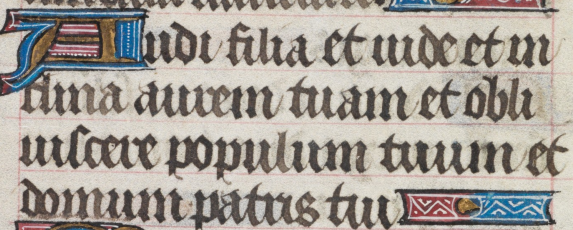 Audi filia et uide et in
clina aurem tuam et obli
uiscere populum tuum et
domum patris tui